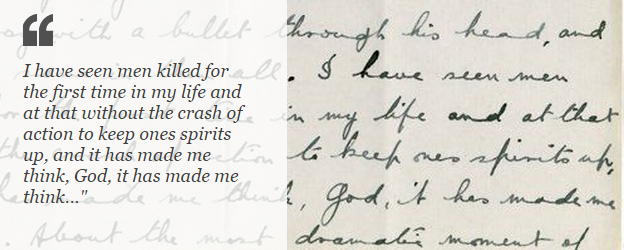 “
I have seen men killed for
the first time in my life and
at that without the crash of
action to keep ones spirits
up, and it has made me
think, God, it has made me
think..."
with a bullet through his head, and
all. I have seen men
in my life and at that
to keep ones spirits up,
made me think, God, it has made me
About the most dramatic moment of